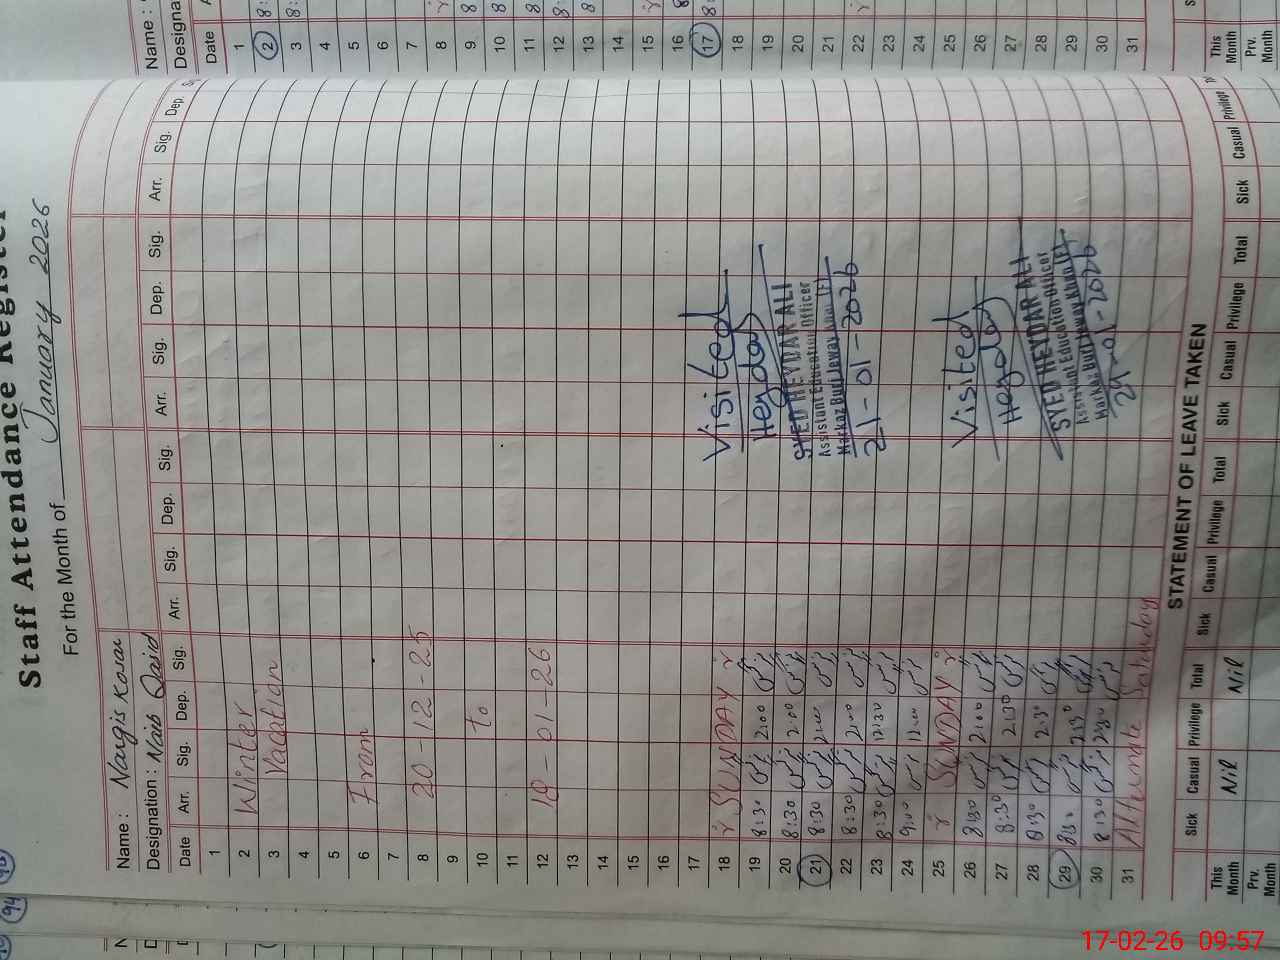 Staff Attendance Register
For the Month of January 2026
Name : Nargis Kosar
Designation : Naib Qaid
Date Arr. Sig. Dep. Sig. Arr. Sig. Dep. Sig. Arr. Sig. Dep. Sig. Arr. Sig. Dep.
1
2 Winter
3 Vacation
4
5
6 From
7
8 20-12-25
9
10 to
11
12
13
14
15
16
17
18 SUNDAY
19 8:30 2:00
20 8:30 2:00
21 8:30 2:00
22 8:30 2:00
23 8:30 12:30
24 9:00
25 SUNDAY
26 8:30 2:00
27 8:30 2:30
28 8:30 2:30
29 8:30 2:30
30 8:30 2:30
31 Alternate Saturday
Visited
SYED HEYDAR ALI
Assistant Education Officer
21-01-2026
Visited
SYED HEYDAR ALI
Assistant Education Officer
29-01-2026
STATEMENT OF LEAVE TAKEN
Sick Casual Privilege Total Sick Casual Privilege Total Sick Casual Privilege Total Sick Casual Privilege
This Month Nil Nil
Prv. Month
Name :
Designa
Date
1
2
3
4
5
6
7
8
9
10
11
12
13
14
15
16
17
18
19
20
21
22
23
24
25
26
27
28
29
30
31
This Month
Prv. Month
94
17-02-26 09:57